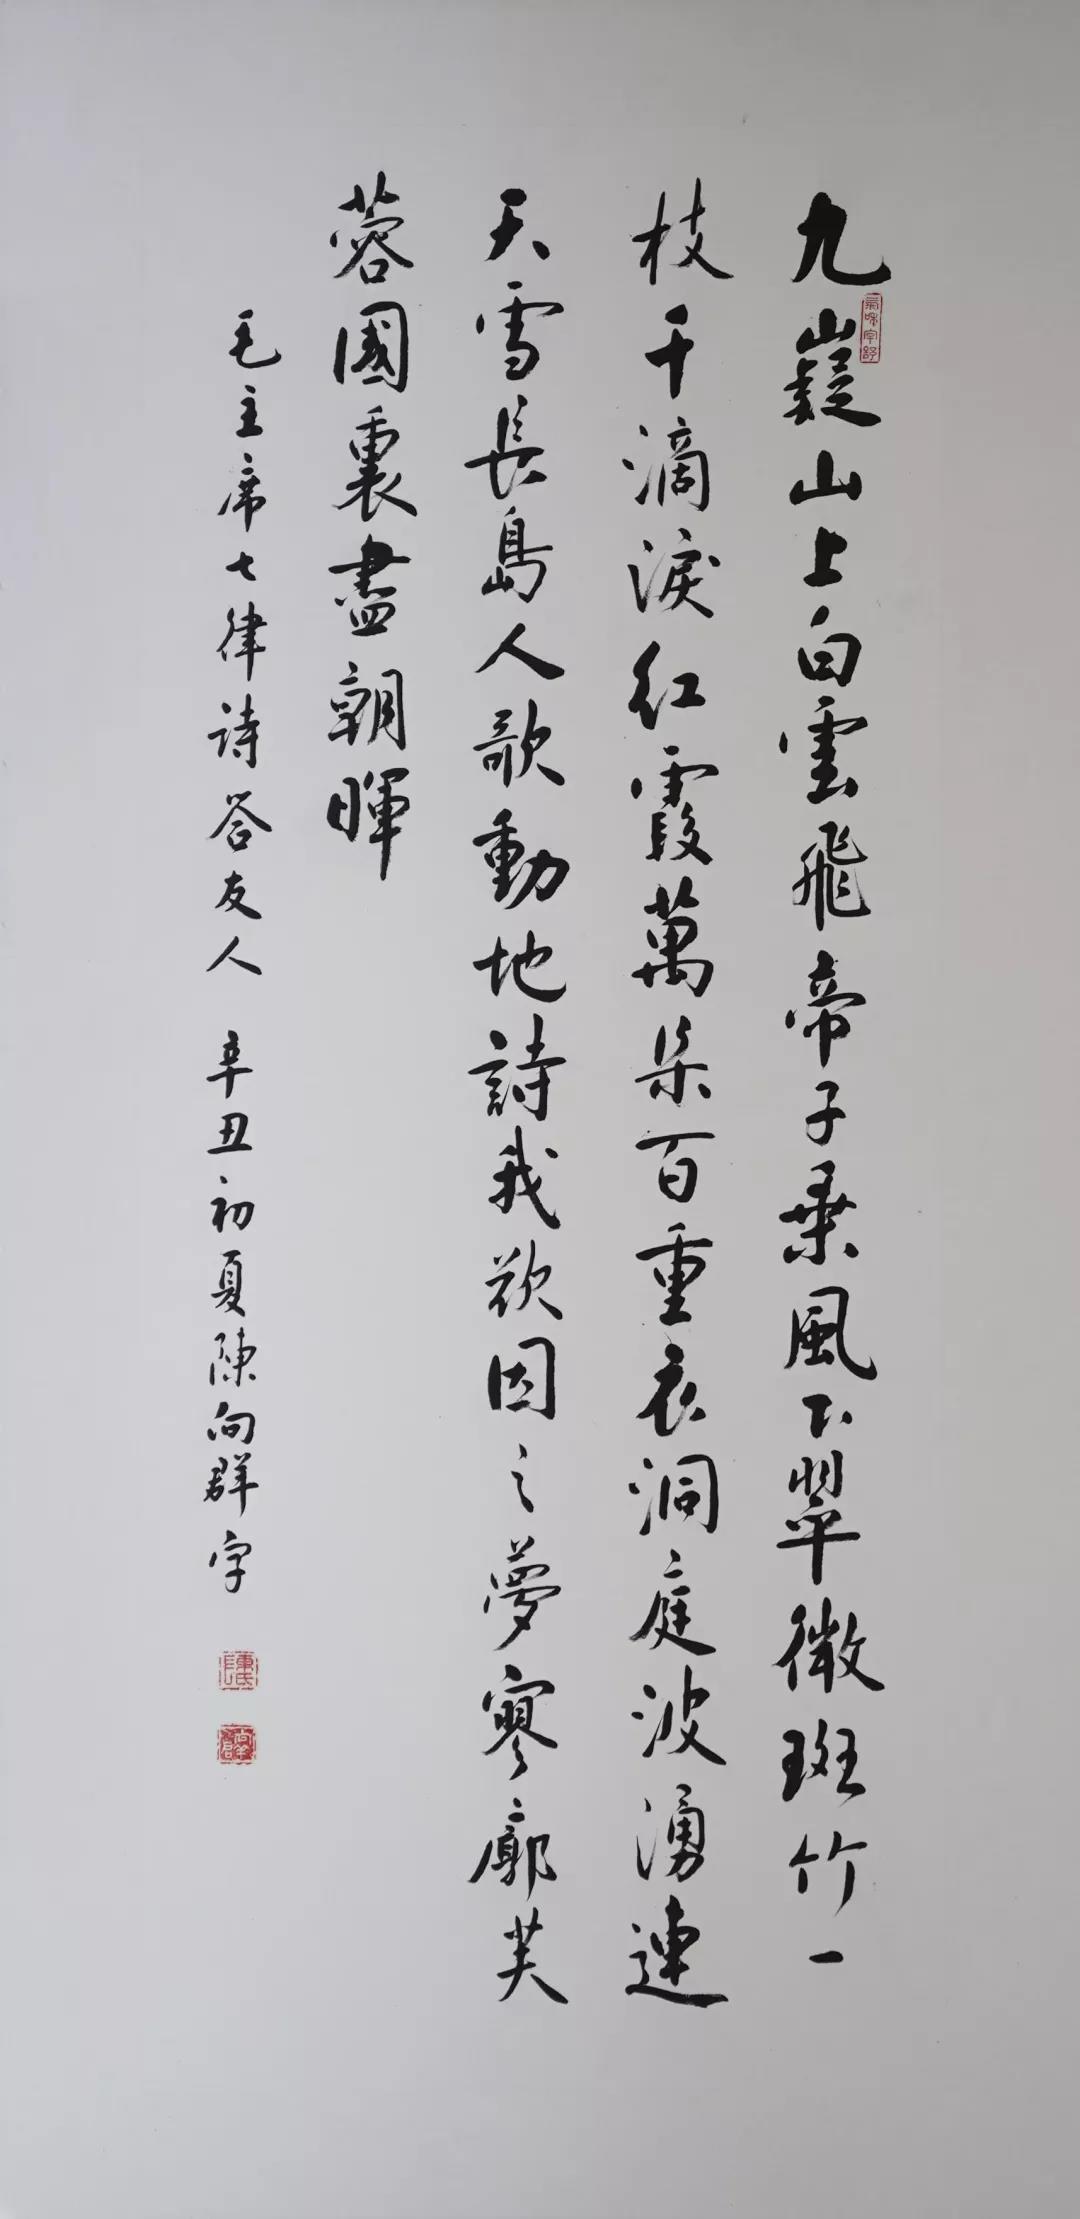 九嶷山上白雲飛帝子乘風下翠微斑竹一
枝千滴淚紅霞萬朵百重衣洞庭波湧連
天雪長島人歌動地詩我欲因之夢寥廓芙
蓉國裏盡朝暉
毛主席七律詩答友人 辛丑初夏陳向群字